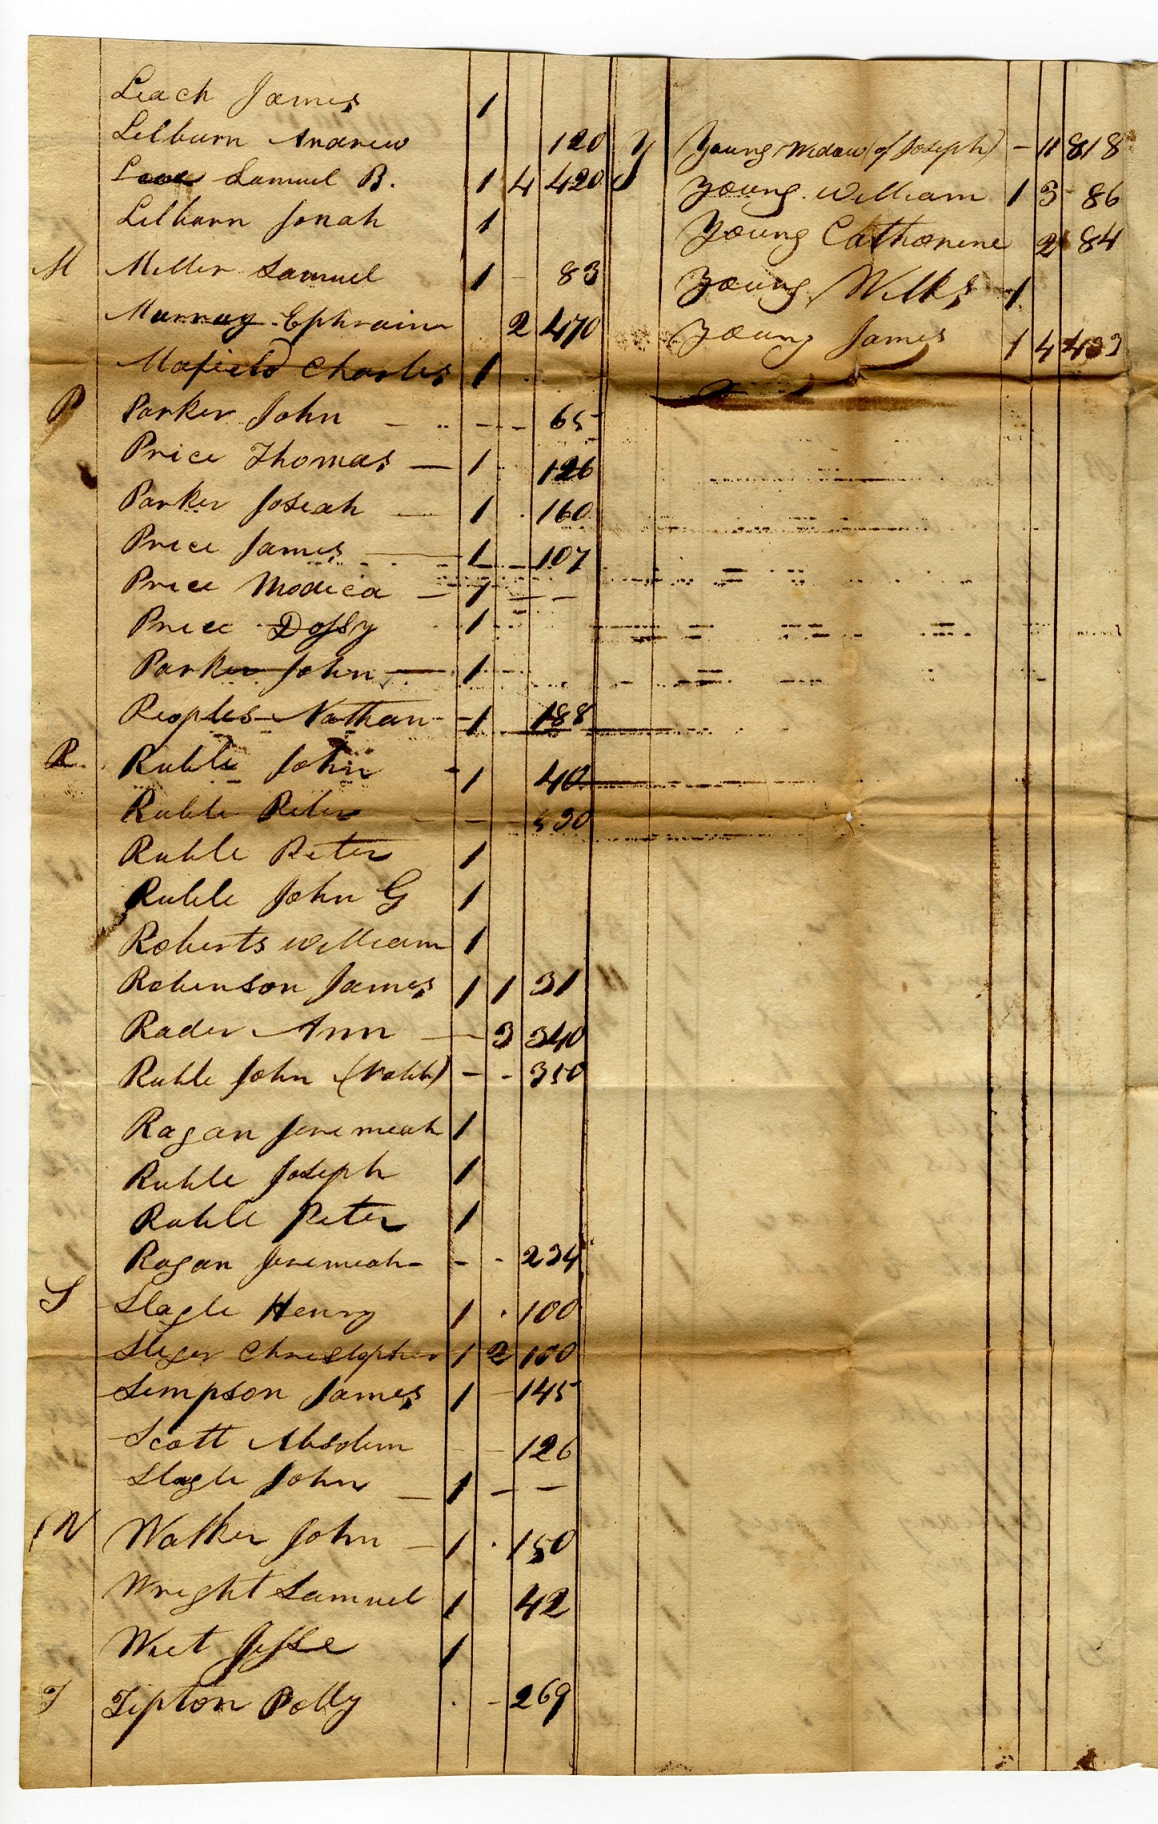 Leach James 1
Lilburn Andrew 120
Love Samuel B. 1 4 420
Lilburn Jonah 1
M Miller Samuel 1 - 83
Murray Ephraim 2 470
Mafield Charles 1
P Parker John - - - 65
Price Thomas - 1 126
Parker Josiah - 1 160
Price James - 1 - 107
Price Modica - 1 - -
Price Dossy 1
Parker John - 1
Peoples Nathan - 1 188
R. Ruble John - 1 40
Ruble Peter - - 530
Ruble Peter 1
Ruble John G 1
Roberts William 1
Robinson James 1 1 31
Rader Ann - 3 340
Ruble John - - 350
Ragan Jeremiah 1
Ruble Joseph 1
Ruble Peter 1
Ragan Jeremiah - - 234
S Slagle Henry 1 100
Christopher 1 2 100
Simpson James 1 - 145
Scott Absolem - - 126
Slagle John - 1 - -
W Walker John - 1 150
Wright Samuel 1 42
West Jesse 1
T Tipton Polly - 269
Y Young Widow (of Joseph) - 11 818
Young William 1 3 86
Young Catharine 2 84
Young Wilks 1
Young James 1 4 433